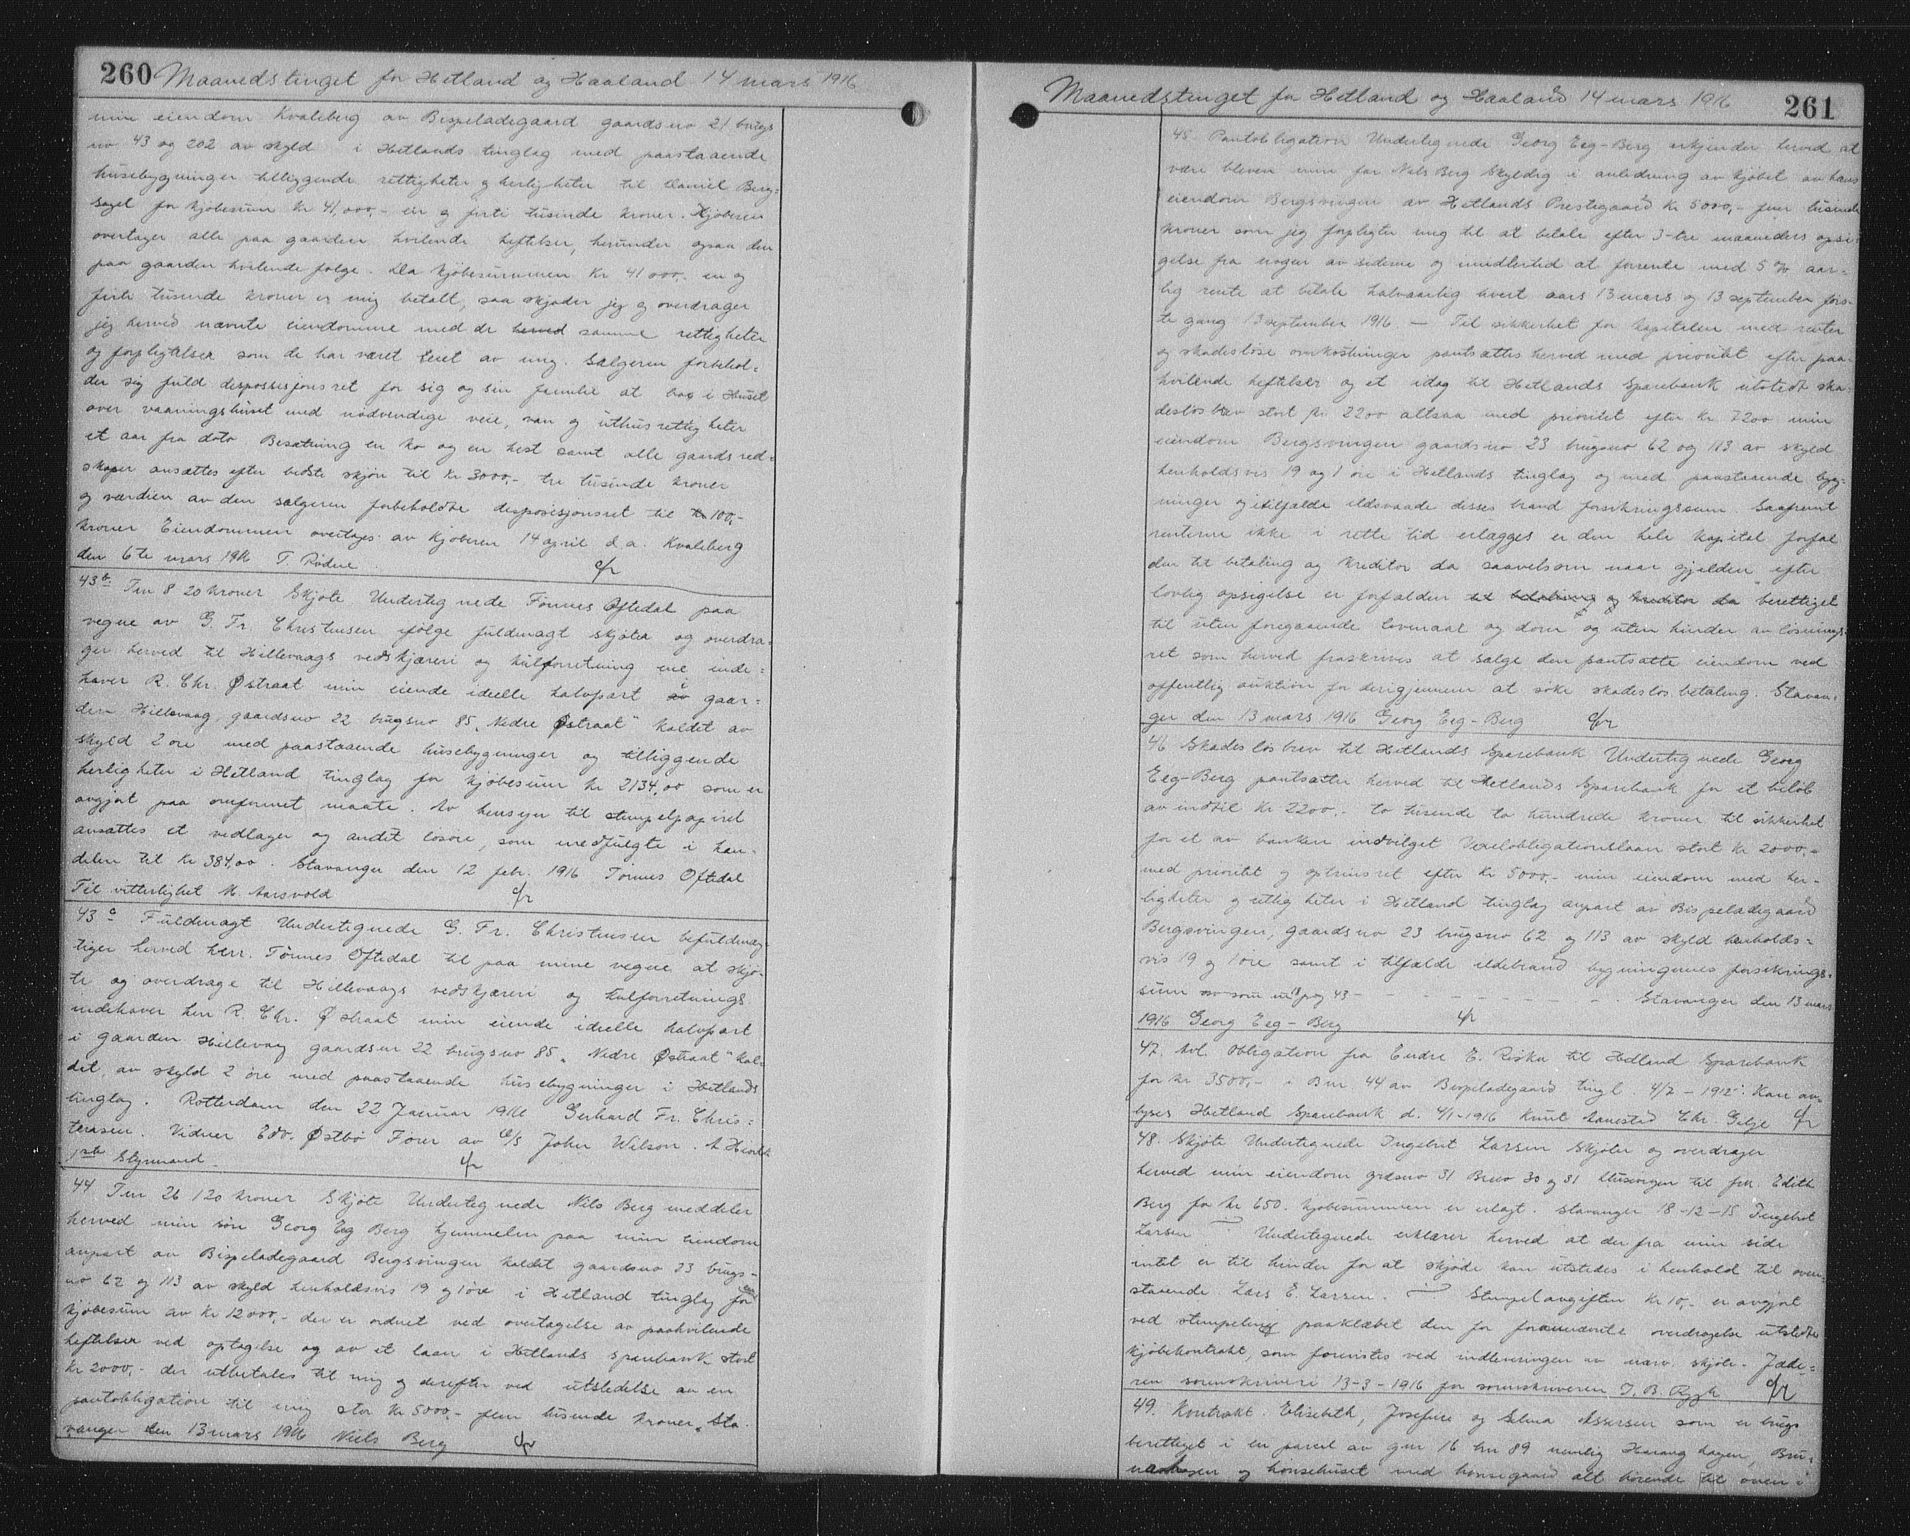 260 Maanedstinget for Hetland og Haaland 14 mars 1916
min eiendom Kvaleberg av Bispeladegaard gaardsno 21 brugs
no 43 og 202 av skyld i Hetlands tinglag med paastaaende
husebygninger tilliggende rettigheter og herligheter til Daniel Berg-
saget for kjøbesum kr 41,000,- en og firti tusinde kroner. Kjøberen
overtager alle paa gaarden hvilende heftelser, herunder ogsaa den
paa gaarden hvilende følge. Da kjøbesummen kr 41000,- en og
firti tusinde kroner er mig betalt, saa skjøder jeg og overdrager
jeg herved nævnte eiendomme med de herved samme rettigheter
og forpligtelser som de har været eiet av mig. Sælgeren forbehol-
der sig fuld desposisjonsret for sig og sin familie at bo i Huset
over vaaningshuset med nødvendige veie, van og uthusrettigheter
et aar fra dato Besætning en ko og en hest samt alle gaardsred-
skaper ansættes efter bedste skjøn til kr 3000,- tre tusinde kroner
og værdien av den sælgeren forbeholdte desposisjonsret til kr 100,-
kroner Eiendommen overtages av kjøberen 14 april d.a. Kvaleberg
den 6te mars 1916 T. Rødne
43b. Ten 8 20 kroner Skjøte Undertegnede Tønnes Oftedal paa
vegne av G. Fr. Christensen ifølge fuldmagt skjøter og overdra-
ger herved til Hillevaags vedskjæreri og kulforretning ene inde-
haver R. Chr. Østraat min eiende ideelle halvpart i gaar-
den Hillevaag, gaardsno 22 brugsno 85 "Nedre Østraat" kaldet av
skyld 2 øre med paastaaende husebygninger og tilliggende
herligheter i Hetland tinglag for kjøbesum kr 2134,00 som er
avgjort paa omforenet maate. Av hensyn til stempelpapiret
ansættes et vedlager og andet løsøre, som medfulgte i han-
delen til kr 384,00. Stavanger den 12 feb. 1916 Tønnes Oftedal
Til vitterlighet M. Aarsvold
43c Fuldmagt Undertegnede G. Fr. Christensen befuldmæg
tiger herved herr. Tønnes Oftedal til paa mine vegne at skjø-
te og overdrage til Hillevaags vedskjæreri og kulforretnings
indehaver herr R. Chr. Østraat min eiende ideelle halvpart
i gaarden Hillevaag gaardsno 22 brugsno 85 "Nedre Østraat" kal-
det, av skyld 2 øre med paastaaende husebygninger i Hetlands
tinglag. Rotterdam den 22 Januar 1916 Gerhard Fr. Chris-
tensen. Vidner Edv. Østbø Fører av S/S John Wilson. A
1ste Styrmand.
44 Ten 26 120 kroner Skjøte Undertegnede Nils Berg meddeler
herved min søn Georg Eeg Berg hjemmelen paa min eiendom
anpart av Bispeladegaard Bergsvingen kaldet gaardsno 23 brugs-
no 62 og 113 av skyld henholdsvis 19 og 1 øre i Hetland tinglag for
kjøbesum av kr 12000,- der er ordnet ved overtagelse av paahvilende
heftelser ved optagelse og av et laan i Hetlands sparebank stort
kr 2000,- der utbetales til mig og derefter ved utstedelse av en
pantobligation til mig stor kr 5000,- fem tusinde kroner, Sta-
vanger den 13 mars 1916 Niels Berg
Maanedstinget for Hetland og Haaland 14 mars 1916 261
45. Pantobligation Undertegnede Georg Eeg-Berg erkjender herved at
være bleven min far Niels Berg skyldig i anledning av kjøbet av hans
eiendom Bergsvingen av Hetlands Prestegaard kr 5000,- fem tusinde
kroner som jeg forpligter mig til at betale efter 3-tre maaneders opsi-
gelse fra nogen av siderne og imidlertid at forrente med 5 % aar-
lig rente at betale halvaarlig hvert aars 13 mars og 13 september førs-
te gang 13 september 1916. — Til sikkerhet for kapitalen med renter
og skadesløse omkostninger pantsættes herved med prioritet efter paa-
hvilende heftelser og et idag til Hetlands Sparebank utstedt ska-
desløsbrev stort kr 2200 altsaa med prioritet efter kr 7200 min
eiendom Bergsvingen gaardsno 23 brugsno 62 og 113 av skyld
henholdsvis 19 og 1 øre i Hetlands tinglag og med paastaaende byg-
ninger og i tilfælde ildsvaade disses brand forsikringssum. Saafremt
renterne ikke i rette tid erlægges er den hele kapital forfal
den til betaling og kreditor da saavelsom naar gjælden efter
lovlig opsigelse er forfalden til betaling og kreditor da berettiget
til uten foregaaende lovmaal og dom og uten hinder av løsnings-
ret som herved fraskrives at sælge den pantsatte eiendom ved
offentlig auktion for derigjennem at søke skadesløs betaling. Stavan-
ger den 13 mars 1916 Georg Eeg-Berg
46 Skadesløsbrev til Hetlands Sparebank Undertegnede Georg
Eeg-Berg pantsætter herved til Hetlands Sparebank for et beløb
av indtil kr 2200,- to tusende to hundrede kroner til sikkerhet
for et av banken indvilget Vexelobligationslaan stort kr 2000,-
med prioritet og optrinsret efter kr 5000,- min eiendom med her-
ligheter og rettigheter i Hetland tinglag anpart av Bispeladegaard
Bergsvingen, gaardsno 23 brugsno 62 og 113 av skyld henholds-
vis 19 og 1 øre samt i tilfælde ildebrand bygningernes forsikrings-
sum som pag 43 - - - - - - - - Stavanger den 13 mars
1916 Georg Eeg-Berg
47. Avl. Obligation fra Endre E. Riska til Hetland Sparebank
for kr 3500,- i Bnr. 44 av Bispeladegaard tingl. 4/2 - 1912. Kan av-
lyses Hetland Sparebank d. 4/1-1916 Knut Aanestad Chr. Gilje
48. Skjøte Undertegnede Ingebret Larsen Skjøter og overdrager
herved min eiendom grdsno 31 Brno 30 og 31 til frk Edith
Berg for kr 650. kjøbesummen er erlagt. Stavanger 18-12-15 Ingebret
Larsen — Undertegnede erklærer herved at der fra min side
intet er til hinder for at skjøde kan utstedes i henhold til oven-
staaende. Lars E. Larsen. — Stempelavgiften kr 10,- er avgjort
ved stempeling paaklæbet den for forannævnte overdragelse utstedte
kjøbekontrakt, som forevistes ved indleveringen av nærv. skjøte. Jæde-
ren sorenskriveri 13-3-1916 for sorenskriveren T. B. Rygh
49. Kontrakt. Elisabeth, Josefine og Selma Assersen som er brugs
berettiget i en parcel av gnr 16 bnr 89 nemlig Haranghagen, Bru-
nashagen og hønsehuset med hønsegaard alt hørende til oven i